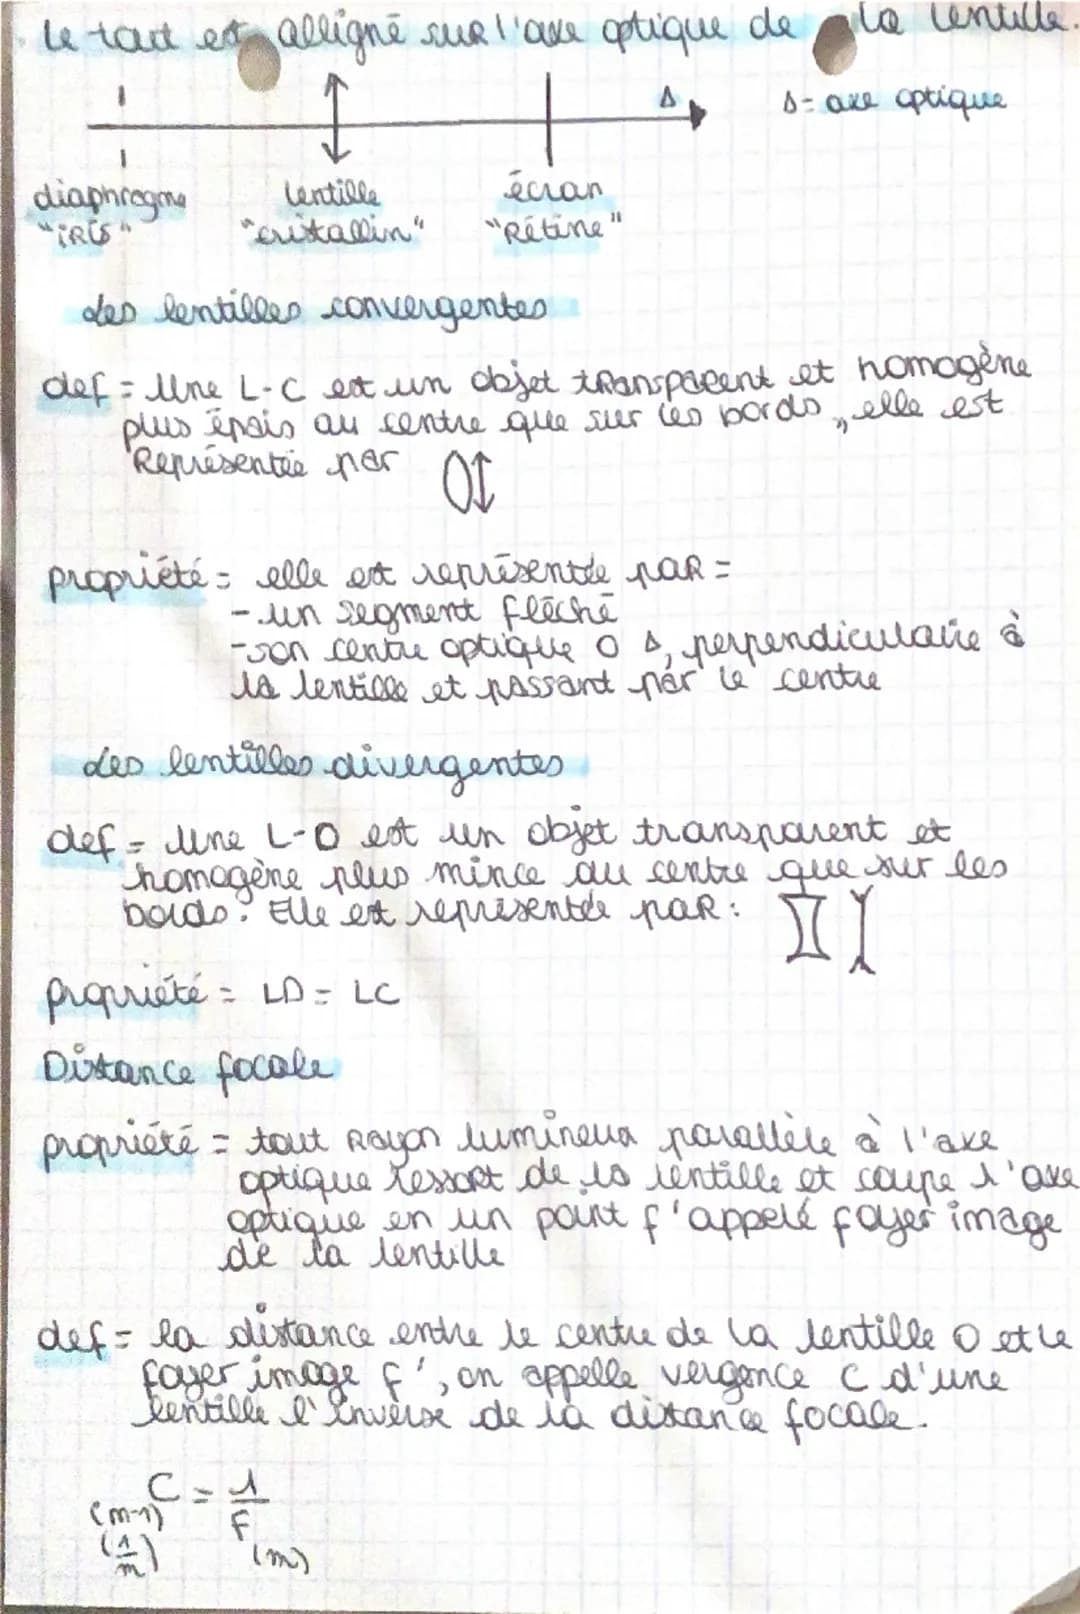 Le tout est alligné sur l'axe optique de la lentille.
Δ
Δ= axe optique
diaphragme lentille écran
"iRis" "cristallin" "Rétine"
Les lentilles convergentes
def = Une L-C est un objet transparent et homogène
plus épais au centre que sur les bords, elle est
Représentée par
propriété = elle est représentée paR =
- un segment fléché
- son centre optique O Δ, perpendiculaire à
la lentille et passant par le centre
Les lentilles divergentes
def = Une L-D est un objet transparent et
homogène plus mince au centre que sur les
bords. Elle est représentée paR :
propriété = LD = LC
Distance focale
propriété = tout Rayon lumineux parallèle à l'axe
optique ressort de la lentille et coupe l'axe
optique en un point f' appelé foyer image
de la lentille
def = la distance entre le centre de la lentille O et le
foyer image f', on appelle vergence C d'une
lentille l'inverse de la distance focale.
C = 1/F
(m-1)
(1/m) (m)